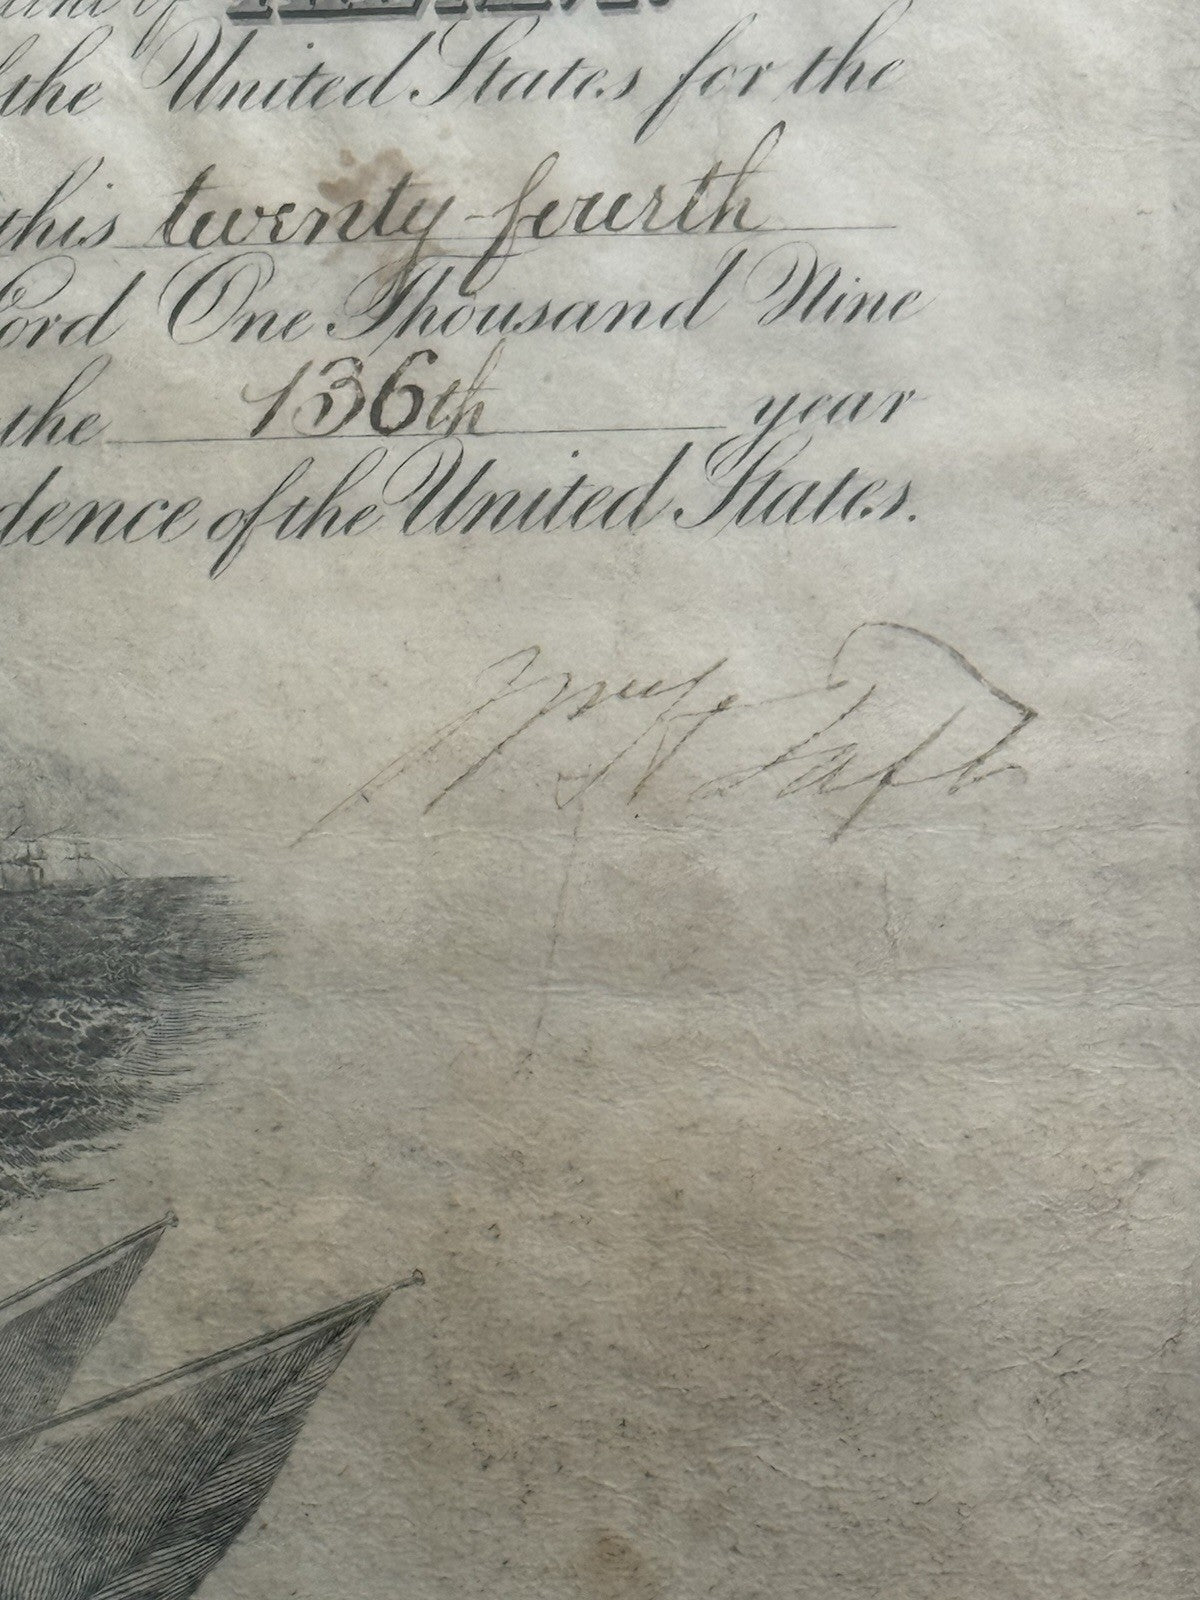 of the United States for the
this twenty-fourth
Lord One Thousand Nine
the 136th year
dence of the United States.
Wm H Taft